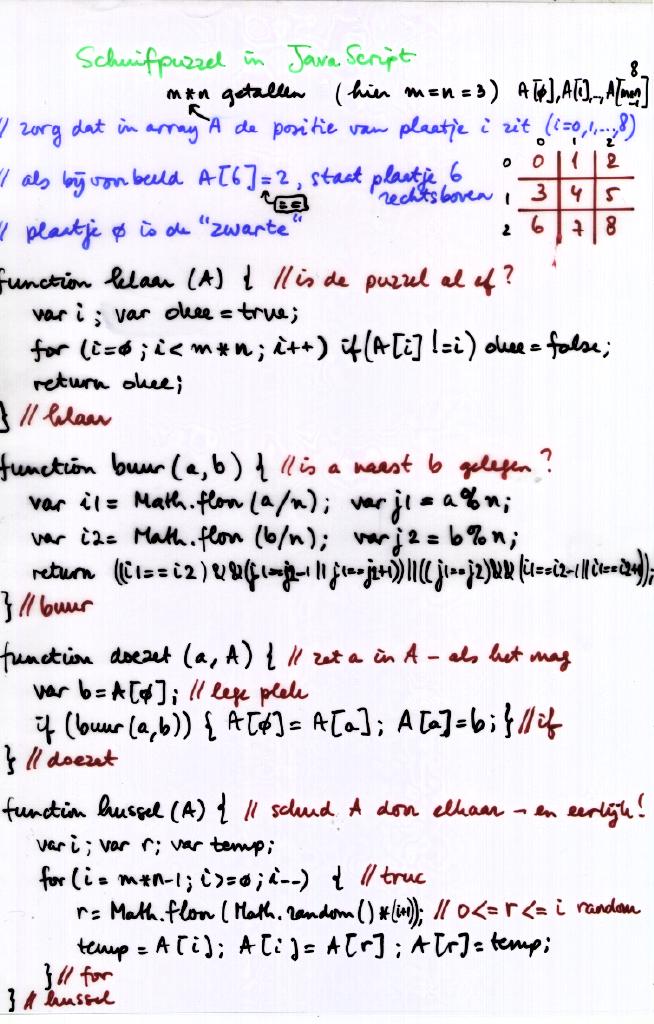 Schuifpuzzel in JavaScript
8
m*n getallen (hier m=n=3) A[ø], A[1],.., A[m*n-1]
// zorg dat in array A de positie van plaatje i zit (i=0,1,...,8)
0 1 2
0 0 1 2
// als bijvoorbeeld A[6]=2, staat plaatje 6
==
rechtsboven
1 3 4 5
// plaatje ø is de "zwarte"
2 6 7 8
function klaar (A) { // is de puzzel al af?
var i; var okee = true;
for (i=ø; i< m*n; i++) if (A[i] != i) okee = false;
return okee;
} // klaar
function buur (a,b) { // is a naast b gelegen?
var i1 = Math.floor (a/n); var j1 = a%n;
var i2 = Math.floor (b/n); var j2 = b%n;
return ((i1==i2) && (j1==j2-1 || j1==j2+1)) || ((j1==j2) && (i1==i2-1 || i1==i2+1));
} // buur
function doezet (a, A) { // zet a in A - als het mag
var b = A[ø]; // lege plek
if (buur (a,b)) { A[ø] = A[a]; A[a] = b; } // if
} // doezet
function hussel (A) { // schud A door elkaar - en eerlijk!
var i; var r; var temp;
for (i = m*n-1; i>=ø; i--) { // truc
r = Math.floor (Math.random() * (i+1)); // 0<= r <= i random
temp = A[i]; A[i] = A[r]; A[r] = temp;
} // for
} // hussel